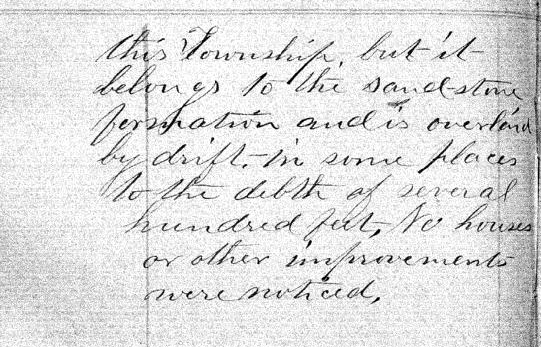 this Township, but it
belongs to the sand-stone
formation and is overlaid
by drift, in some places
to the debth of several
hundred feet, No houses
or other improvements
were noticed,